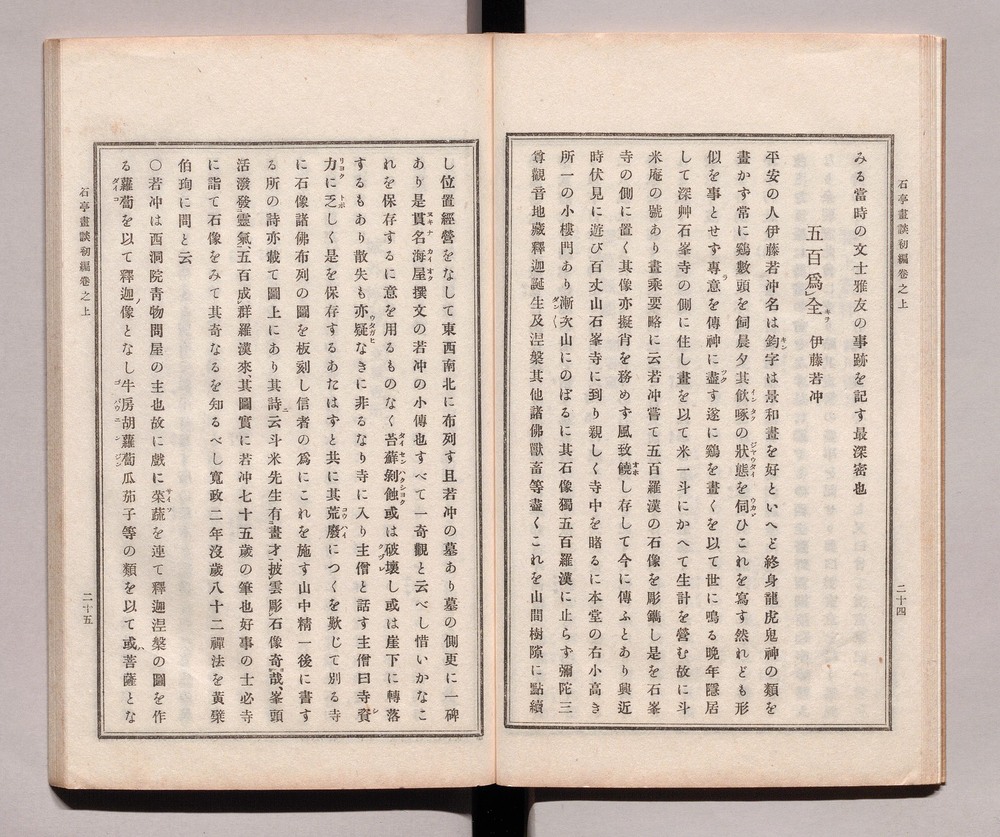 石亭畫談初編卷之上
二十四
みる當時の文士雅友の事跡を記す最深密也
五百爲全 伊藤若冲
平安の人伊藤若冲名は鈞字は景和畫を好といへど終身龍虎鬼神の類を
畫かす常に鷄數頭を飼晨夕其飮啄の狀態を伺ひこれを寫す然れども形
似を事とせす專意を傳神に盡す遂に鷄を畫くを以て世に鳴る晚年隱居
して深艸石峯寺の側に住し畫を以て米一斗にかへて生計を營む故に斗
米庵の號あり畫乘要略に云若冲嘗て五百羅漢の石像を彫鐫し是を石峯
寺の側に置く其像亦擬肖を務めす風致饒し存して今に傳ふとあり興近
時伏見に遊び百丈山石峯寺に到り親しく寺中を睹るに本堂の右小高き
所一の小樓門あり漸次山にのぼるに其石像獨五百羅漢に止らす彌陀三
尊觀音地藏釋迦誕生及涅槃其他諸佛獸畜等盡くこれを山間樹隙に點續
し位置經營をなして東西南北に布列す且若冲の墓あり墓の側更に一碑
あり是貫名海屋撰文の若冲の小傳也すべて一奇觀と云べし惜いかなこ
れを保存するに意を用るものなく苔蘇剝蝕或は破壞し或は崖下に轉落
するもあり散失も亦疑なきに非るなり寺に入り主僧と話す主僧曰寺貲
力に乏しく是を保存するあたはすと共に其荒廢につくを歎じて別る寺
に石像諸佛布列の圖を板刻し信者の爲にこれを施す山中精一後に書す
る所の詩亦載て圖上にあり其詩云斗米先生有畫才披雲彫石像奇哉、峯頭
活潑發靈氣、五百成群羅漢來、其圖實に若冲七十五歲の筆也好事の士必寺
に詣て石像をみて其奇なるを知るべし寬政二年沒歲八十二禪法を黃檗
伯珣に問と云
○若冲は西洞院靑物問屋の主也故に戲に菜蔬を連て釋迦涅槃の圖を作
る蘿蔔を以て釋迦像となし牛房胡蘿蔔瓜茄子等の類を以て或菩薩とな
石亭畫談初編卷之上
二十五